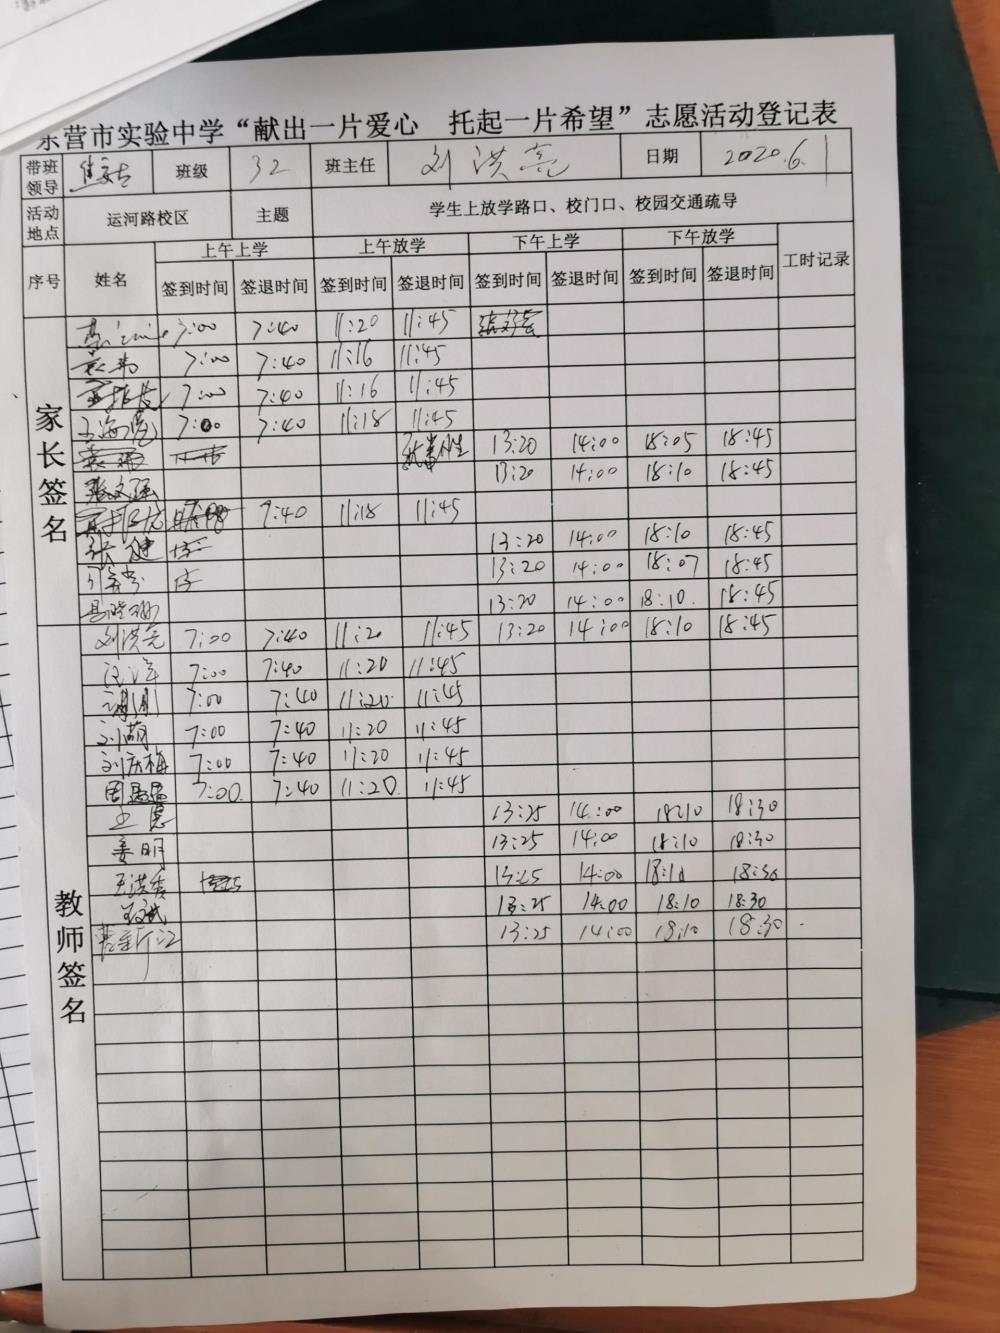 东营市实验中学“献出一片爱心 托起一片希望”志愿活动登记表
带班领导 班级 32 班主任 刘洪亮 日期 2020.6.1
活动地点 运河路校区 主题 学生上放学路口、校门口、校园交通疏导
序号 姓名 上午上学 上午放学 下午上学 下午放学 工时记录
签到时间 签退时间 签到时间 签退时间 签到时间 签退时间 签到时间 签退时间
家长签名
7:00 7:40 11:20 11:45
7:00 7:40 11:16 11:45
7:00 7:40 11:16 11:45
7:00 7:40 11:18 11:45
13:20 14:00 18:05 18:45
张文强 13:20 14:00 18:10 18:45
7:40 11:18 11:45
张健 13:20 14:00 18:10 18:45
13:20 14:00 18:07 18:45
13:20 14:00 18:10. 18:45
教师签名
刘洪亮 7:00 7:40 11:20 11:45 13:20 14:00 18:10 18:45
7:00 7:40 11:20 11:45
7:00 7:40 11:20 11:45
刘萌 7:00 7:40 11:20 11:45
刘庆梅 7:00 7:40 11:20 11:45
周磊磊 7:00. 7:40 11:20. 11:45
13:25 14:00 18:10 18:30
姜明 13:25 14:00 18:10 18:30
王洪秀 13:25 14:00 18:10 18:30
13:25 14:00 18:10 18:30
13:25 14:00 18:10 18:30